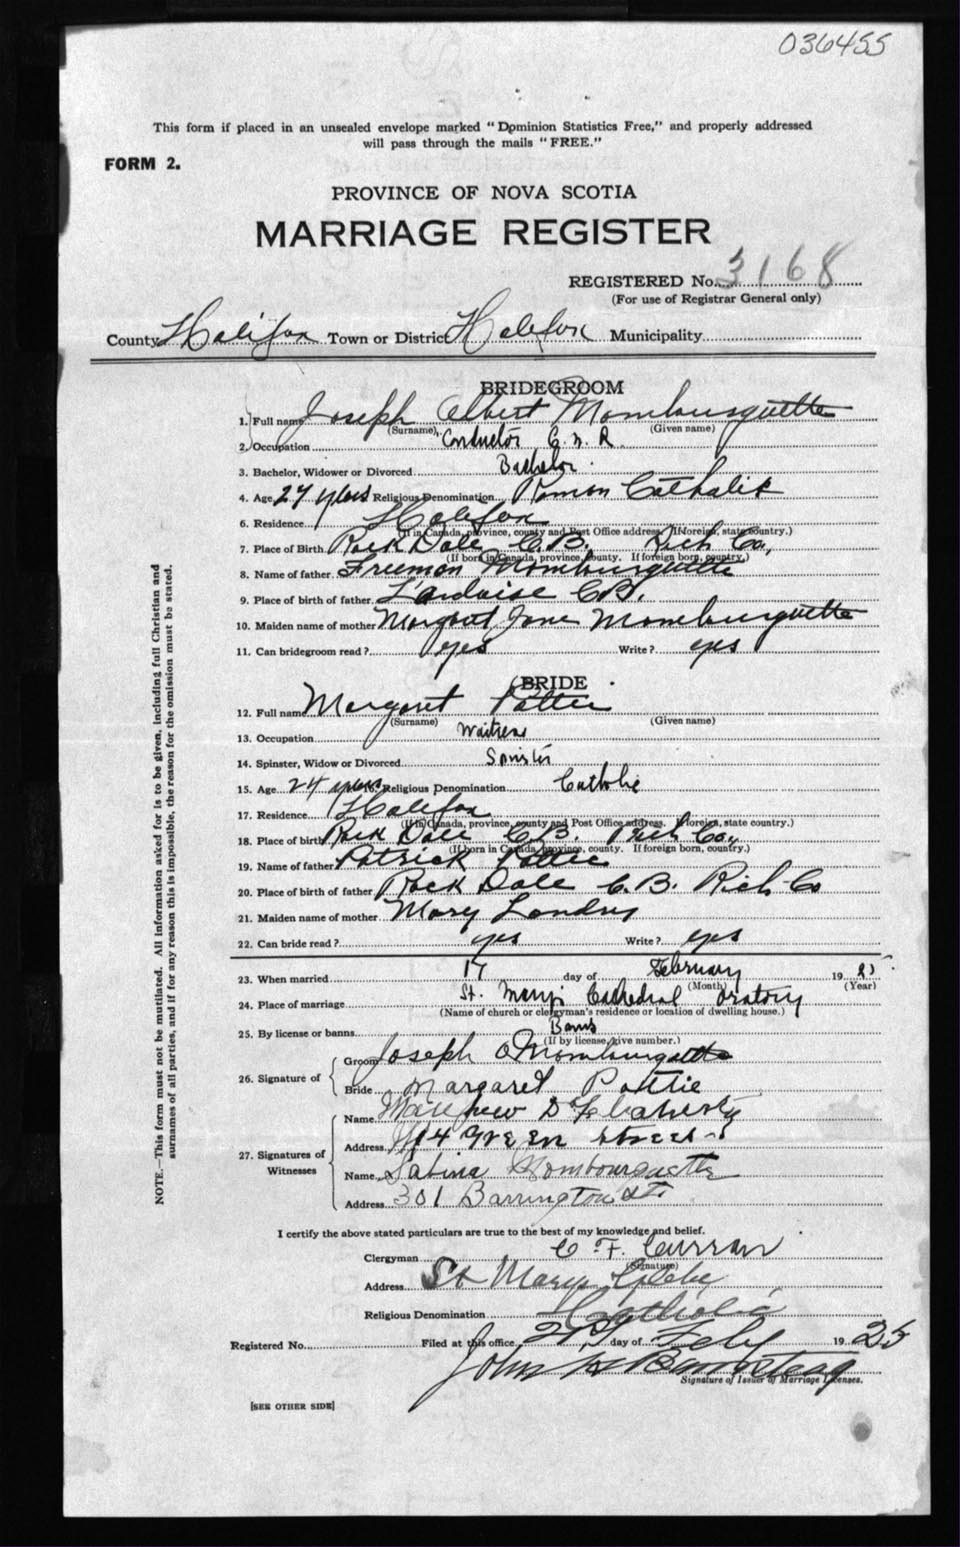 036455
This form if placed in an unsealed envelope marked "Dominion Statistics Free," and properly addressed
will pass through the mails "FREE."
FORM 2.
PROVINCE OF NOVA SCOTIA
MARRIAGE REGISTER
REGISTERED No. 3168
(For use of Registrar General only)
County Halifax Town or District Halifax Municipality
BRIDEGROOM
1. Full name Joseph Albert Mombourquette
(Surname) (Given name)
2. Occupation Conductor C. N. R.
3. Bachelor, Widower or Divorced Bachelor.
4. Age 27 years Religious Denomination Roman Catholic
6. Residence Halifax
(If in Canada, province, county and Post Office address. If foreign, state country.)
7. Place of Birth Rock Dale C.B. Rich Co.,
(If born in Canada, province, county. If foreign born, country.)
8. Name of father Freeman Mombourquette
9. Place of birth of father L'Ardoise C.B.
10. Maiden name of mother Margaret Jane Mombourquette
11. Can bridegroom read? yes Write? yes
BRIDE
12. Full name Margaret Pattie
(Surname) (Given name)
13. Occupation Waitress
14. Spinster, Widow or Divorced Spinster
15. Age 24 years 16. Religious Denomination Catholic
17. Residence Halifax
(If in Canada, province, county and Post Office address. If foreign, state country.)
18. Place of birth Rock Dale C.B. Rich Co.,
(If born in Canada, province, county. If foreign born, country.)
19. Name of father Patrick Pattie
20. Place of birth of father Rock Dale C.B. Rich Co
21. Maiden name of mother Mary Landry
22. Can bride read? yes Write? yes
23. When married 17 day of February 19 25
(Month) (Year)
24. Place of marriage St. Mary's Cathedral Oratory
(Name of church or clergyman's residence or location of dwelling house.)
25. By license or banns Banns
(If by license, give number.)
26. Signature of
Groom Joseph A Mombourquette
Bride Margaret Pattie
27. Signatures of Witnesses
Name Matthew D Flaherty
Address 14 Green Street
Name Sabina Mombourquette
Address 301 Barrington St.
I certify the above stated particulars are true to the best of my knowledge and belief.
Clergyman C. F. Curran
(Signature)
Address St Marys Glebe
Religious Denomination Catholic
Registered No. Filed at this office 21 day of Feby 19 25
John
Signature of Issuer of Marriage Licenses.
[SEE OTHER SIDE]
NOTE.—This form must not be mutilated. All information asked for is to be given, including full Christian and
surnames of all parties, and if for any reason this is impossible, the reason for the omission must be stated.